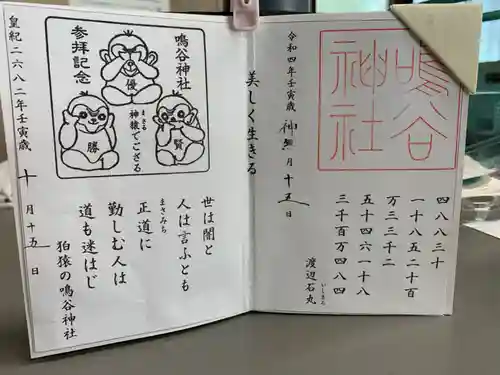 鳴谷
神社
四八八三十
一十八五二十百
万三三千二
五十四六一十八
三千百万四八四
渡辺石丸
いしまる
令和四年壬寅歳 神無月十五日
美しく生きる
鳴谷神社
神猿でござる
まさる
参拝記念
優
賢
勝
世は闇と
人は言ふとも
正道に
まさみち
勤しむ人は
道も迷はじ
狛猿の鳴谷神社
皇紀二六八二年壬寅歳 十月十五日